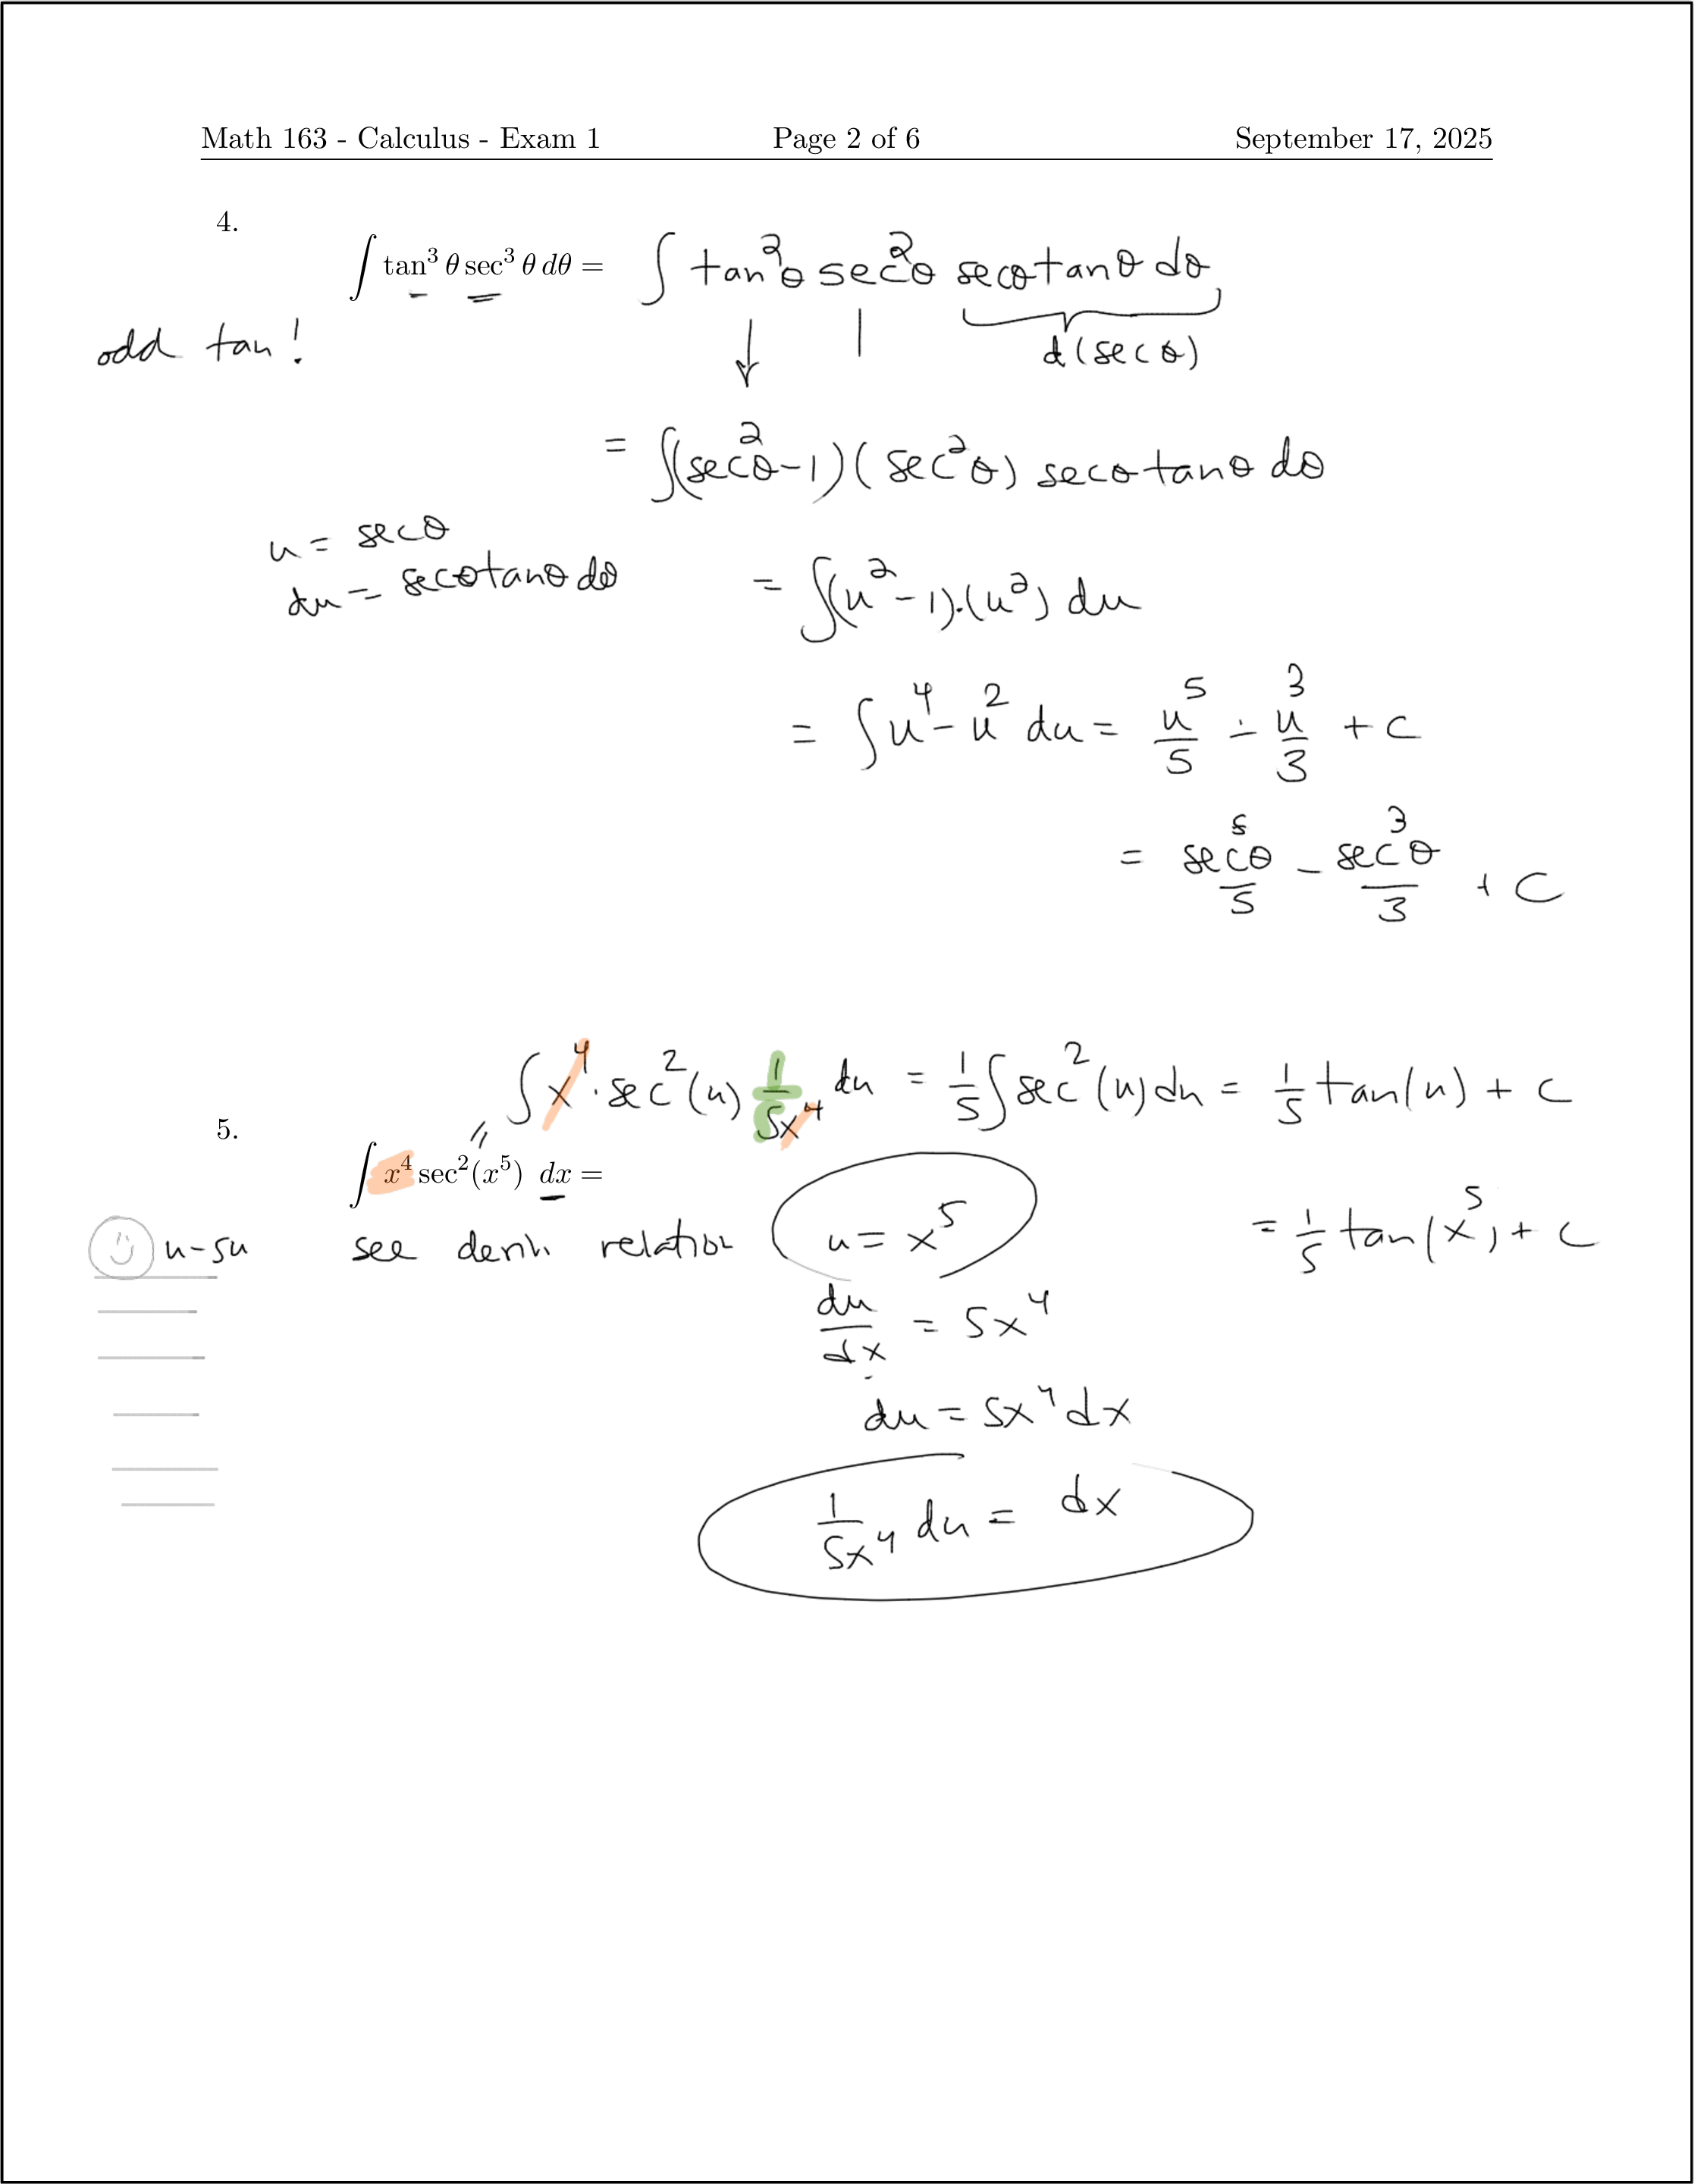 Math 163 - Calculus - Exam 1 Page 2 of 6 September 17, 2025
4.
∫ tan³ θ sec³ θ dθ = ∫ tan²θ sec²θ secθ tanθ dθ
odd tan!
d(secθ)
= ∫(sec²θ-1)(sec²θ) secθ tanθ dθ
u = secθ
du = secθ tanθ dθ
= ∫(u²-1)·(u²) du
= ∫u⁴ - u² du = u⁵/5 - u³/3 + C
= sec⁵θ/5 - sec³θ/3 + C
∫ x⁴·sec²(u) 1/5x⁴ du = 1/5 ∫ sec²(u) du = 1/5 tan(u) + C
5.
∫ x⁴ sec²(x⁵) dx =
u-su see deriv. relation u = x⁵
= 1/5 tan(x⁵) + C
du/dx = 5x⁴
du = 5x⁴ dx
1/5x⁴ du = dx